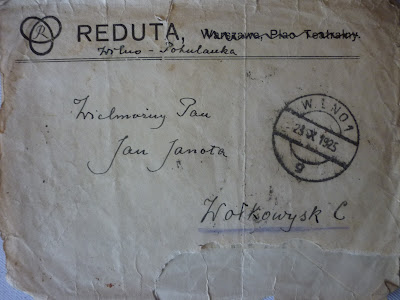 R
REDUTA, Warszawa, Plac Teatralny.
Wilno - Pohulanka
Wielmożny Pan
Jan Janota
WILNO 1
23 IX 1925
g
Wołkowysk C